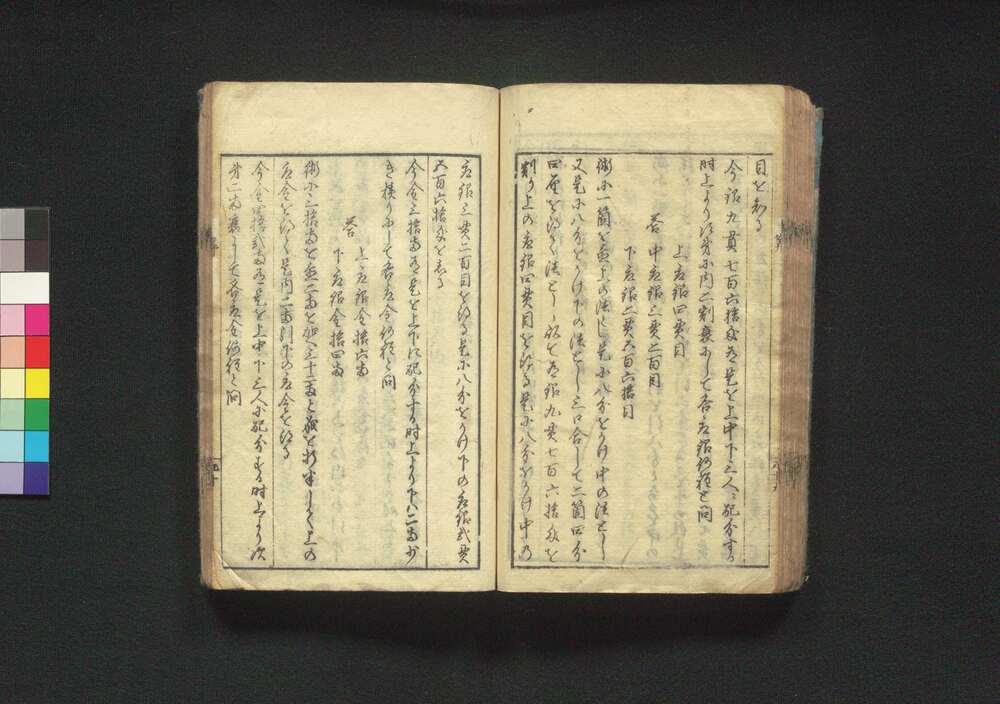 目を知る
今銀九貫七百六拾匁有是を上中下三人ニ配分する
時上より次第に内二割衰にして各応銀何程と問
上応銀四貫目
答 中応銀三貫二百目
下応銀二貫五百六拾目
術に一箇を置上の法とし是に八分をかけ中の法とし
又是に八分をかけ下の法とし三口合して二箇四分
四厘を得て法とし扨て有銀九貫七百六拾匁を
割り上の応銀四貫目を得る是に八分をかけ中の
応銀三貫二百目を得る是に八分をかけ下の応銀弐貫
五百六拾匁を知る
今金三拾両有是を上下に配分する時上より下ハ二両少
き様にして各応金何程と問
上応銀金拾六両
答
下応銀金拾四両
術に三拾両を置二両を加へ三十二両と成を折半して上の
応金を得て是内二両引下の応金を得る
今金四拾弐両有是を上中下三人に配分する時上より次
第二両衰にして各応金何程と問